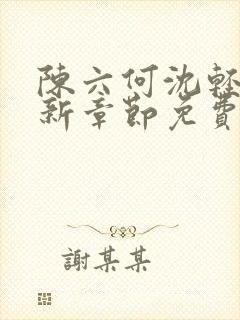 陳六何沈輕
新章節免費
謝某某